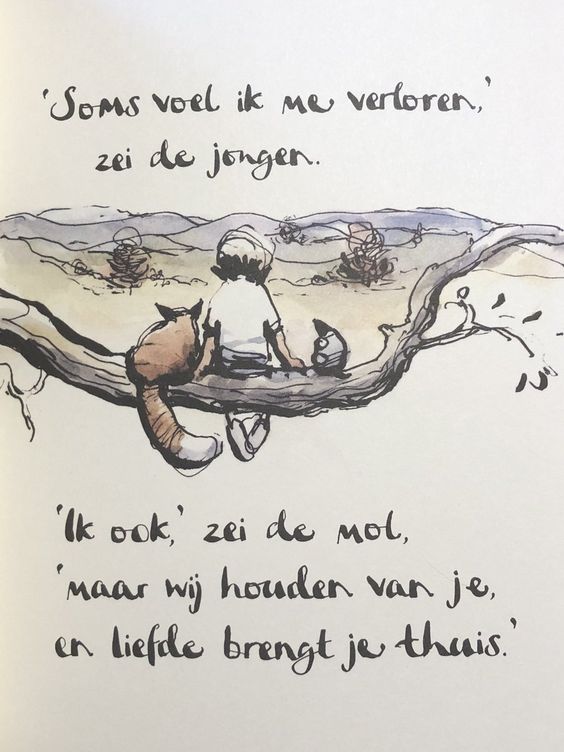 'Soms voel ik me verloren,'
zei de jongen.
'Ik ook,' zei de mol,
'maar wij houden van je,
en liefde brengt je thuis.'